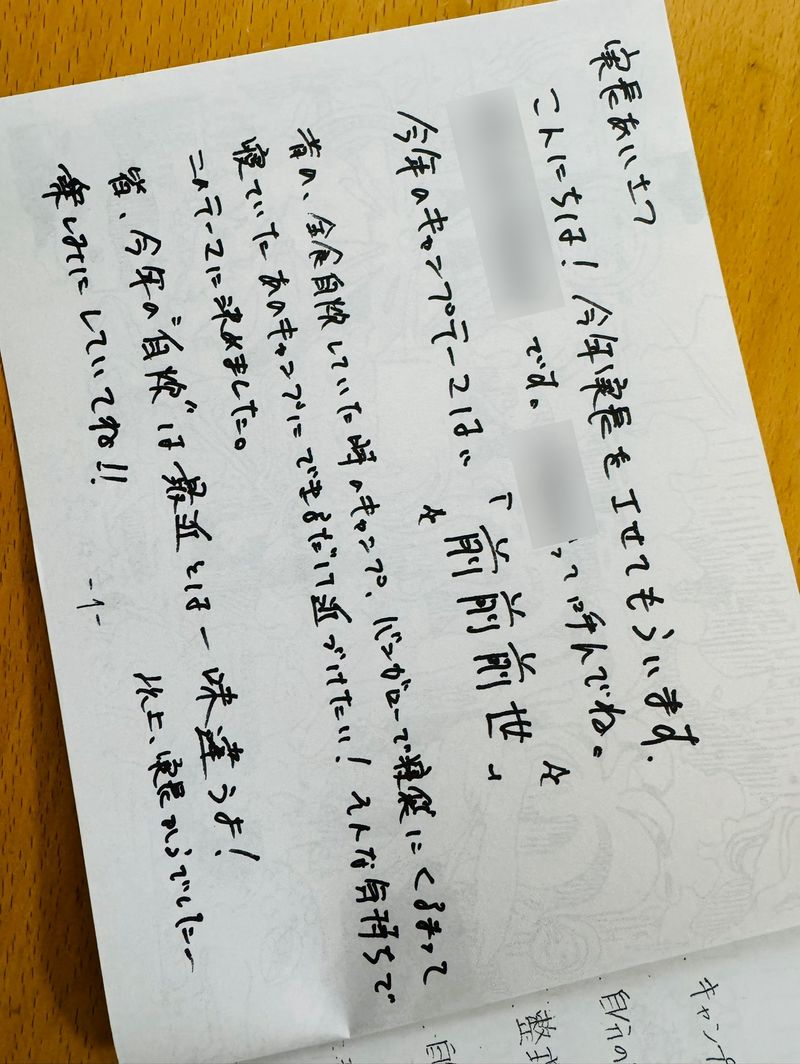 実長あいさつ
こんにちは!今年実長をTせてもらいます.
です。
って呼んでね。
今年のキャンプテーマは、
「前前前世」
昔の、飯食自炊していた時のキャンプ、バンガローで寝袋にくるまって
寝ていたあのキャンプにできるだけ近づけたい!そんな気持ちで
このテーマに決めました。
皆、今年の"自炊"は最近とは一味違うよ!
楽しみにしていてね!!
以上、実長からでしたー
-1-
キャンプ
自分の
整
自